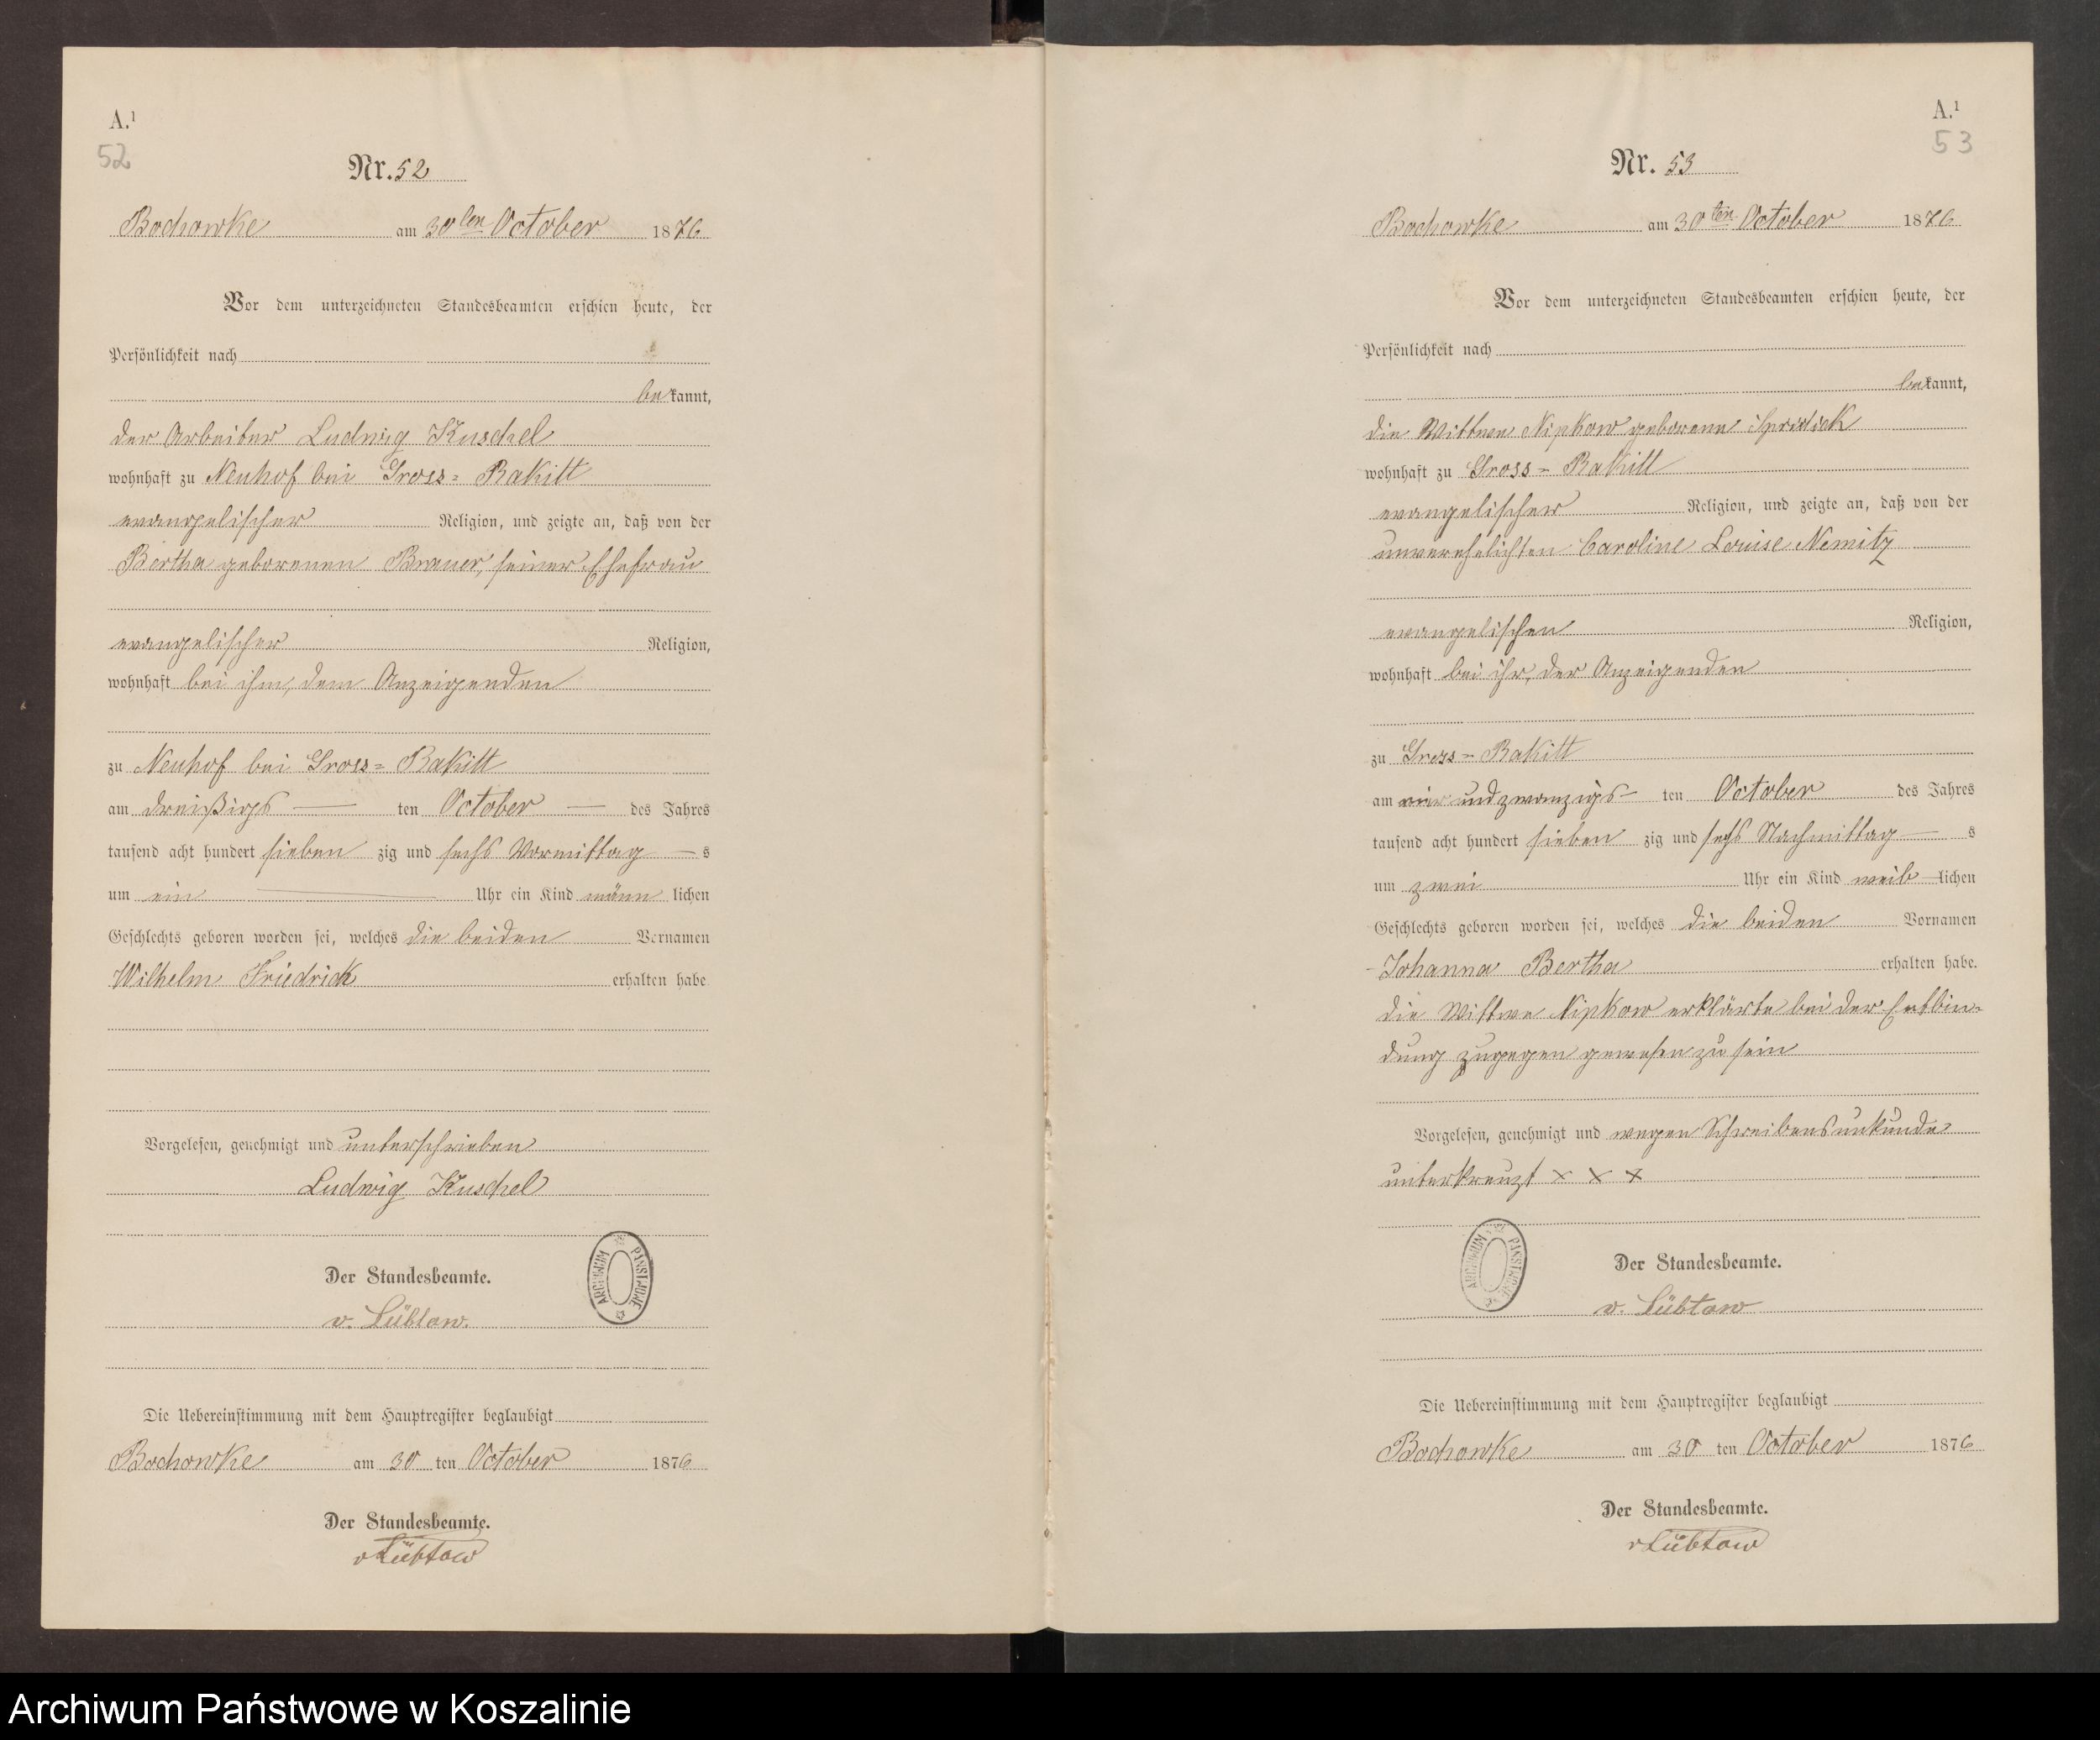 A.¹
52
Nr. 52
Bochowke am 30ten October 1876
Vor dem unterzeichneten Standesbeamten erschien heute, der
Persönlichkeit nach
bekannt,
der Arbeiter Ludwig Kuschel
wohnhaft zu Neuhof bei Gross-Rakitt
evangelischer Religion, und zeigte an, daß von der
Bertha geborenen Brauer, seiner Ehefrau
evangelischer Religion,
wohnhaft bei ihm, dem Anzeigenden
zu Neuhof bei Gross-Rakitt
am dreißigs ten October des Jahres
tausend acht hundert sieben zig und sechs Vormittag s
um ein Uhr ein Kind männ lichen
Geschlechts geboren worden sei, welches die beiden Vornamen
Wilhelm Friedrick erhalten habe
Vorgelesen, genehmigt und unterschrieben
Ludwig Kuschel
Der Standesbeamte.
v. Lübtow.
ARCHIWUM PAŃSTWOWE
Die Uebereinstimmung mit dem Hauptregister beglaubigt
Bochowke am 30 ten October 1876
Der Standesbeamte.
v Lübtow
A.¹
53
Nr. 53
Bochowke am 30ten October 1876
Vor dem unterzeichneten Standesbeamten erschien heute, der
Persönlichkeit nach
bekannt,
die Wittwe Nipkow geborene
wohnhaft zu Gross-Rakitt
evangelischer Religion, und zeigte an, daß von der
unverehelichten Caroline Louise Nemitz
evangelischen Religion,
wohnhaft bei ihr, der Anzeigenden
zu Gross-Rakitt
am undzwanzigs ten October des Jahres
tausend acht hundert sieben zig und sechs Nachmittag s
um zwei Uhr ein Kind weib lichen
Geschlechts geboren worden sei, welches die beiden Vornamen
Johanna Bertha erhalten habe.
die Wittwe Nipkow erklärte bei der Entbin-
dung zugegen gewesen zu sein
Vorgelesen, genehmigt und wegen Schreibensunkunde
unterkreuzt x x x
ARCHIWUM PAŃSTWOWE
Der Standesbeamte.
v. Lübtow
Die Uebereinstimmung mit dem Hauptregister beglaubigt
Bochowke am 30 ten October 1876
Der Standesbeamte.
v Lübtow
Archiwum Państwowe w Koszalinie